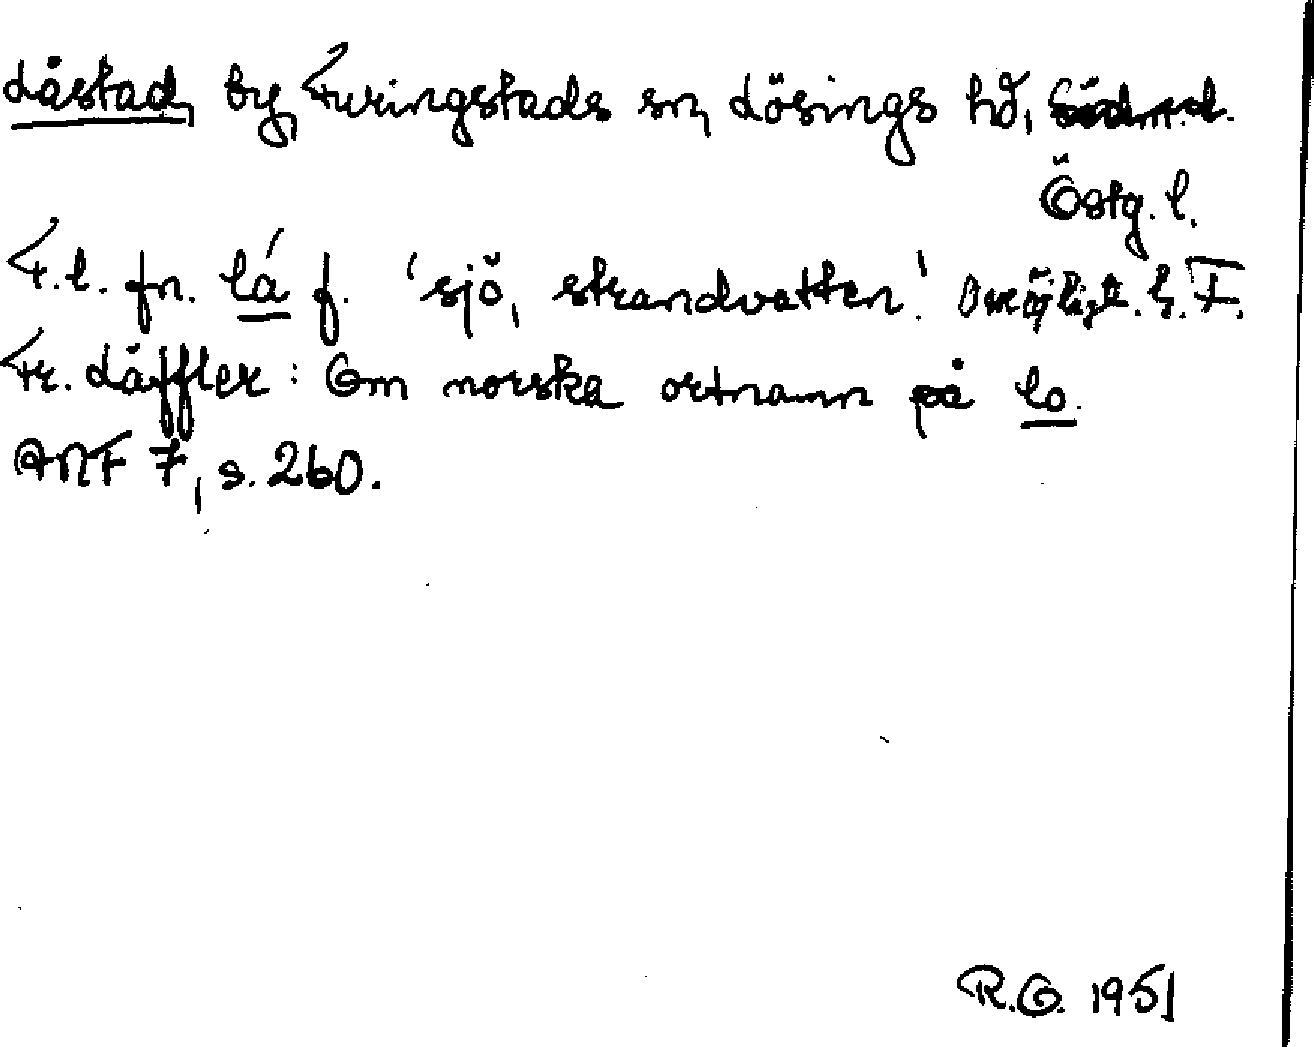 Låstad, by, Furingstads sn, Lösings hd, Södm.l.
Östg. l.
F.l. fn. lá f. 'sjö, strandvatten'. Omöjligt. h. F.
Fr. Läffler: Om norska ortnamn på lo.
ANF 7, s. 260.
R.O. 1951